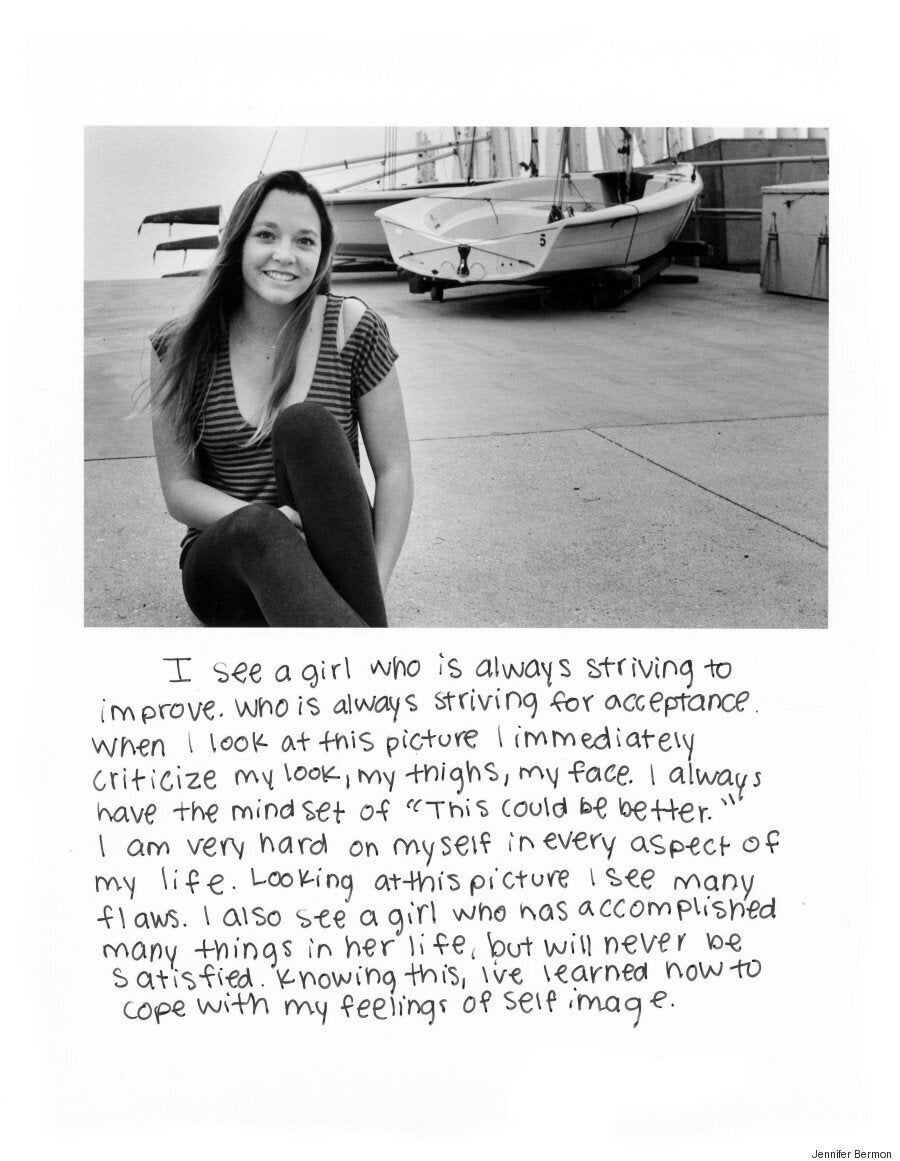 5
I see a girl who is always striving to
improve. Who is always striving for acceptance.
When I look at this picture I immediately
criticize my look, my thighs, my face. I always
have the mindset of "This could be better."
I am very hard on myself in every aspect of
my life. Looking at this picture I see many
flaws. I also see a girl who has accomplished
many things in her life, but will never be
satisfied. Knowing this, I've learned how to
cope with my feelings of self image.
Jennifer Bermon